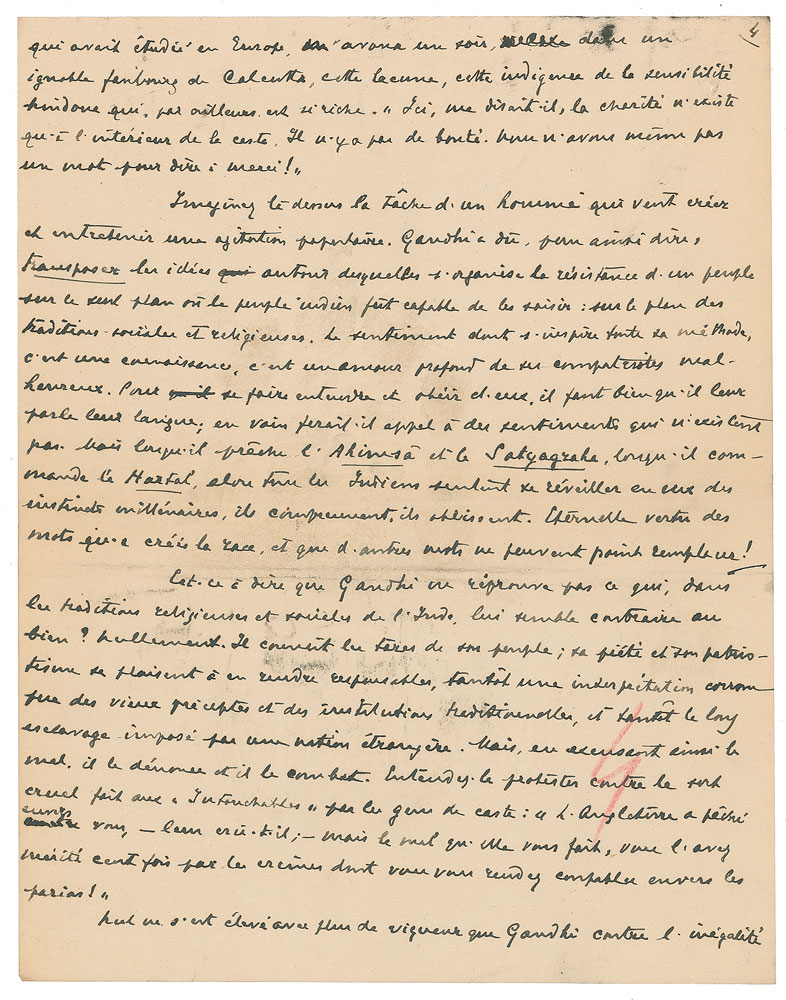 4
qui avait étudié en Europe, m'avoua un soir, dans un
ignoble faubourg de Calcutta, cette lacune, cette indigence de la sensibilité
hindoue qui, par ailleurs, est si riche. « Ici, me disait-il, la charité n'existe
qu'à l'intérieur de la caste. Il n'y a pas de bonté. Nous n'avons même pas
un mot pour dire : merci ! »
Imaginez là-dessus la tâche d'un homme qui veut créer
et entretenir une agitation populaire. Gandhi a dû, pour ainsi dire,
transposer les idées qui autour desquelles s'organise la résistance d'un peuple
sur le seul plan où le peuple indien fût capable de les saisir : sur le plan des
traditions sociales et religieuses. Le sentiment dont s'inspire toute sa méthode,
c'est une connaissance, c'est un amour profond de ses compatriotes mal-
heureux. Pour qu'il se faire entendre et obéir d'eux, il faut bien qu'il leur
parle leur langue ; en vain ferait-il appel à des sentiments qui n'existent
pas. Mais lorsqu'il prêche l'Ahimsâ et le Satyagraha, lorsqu'il com-
mande le Hartal, alors tous les Indiens sentent se réveiller en eux des
instincts millénaires, ils comprennent, ils obéissent. Eternelle vertu des
mots qu'a créés la race, et que d'autres mots ne peuvent point remplacer !
Est-ce à dire que Gandhi ne réprouve pas ce qui, dans
les traditions religieuses et sociales de l'Inde, lui semble contraire au
bien ? Nullement. Il connaît les tares de son peuple ; sa piété et son patrio-
tisme se plaisent à en rendre responsables, tantôt une interprétation corrom
pue des vieux préceptes et des institutions traditionnelles, et tantôt le long
esclavage imposé par une nation étrangère. Mais, en excusant ainsi le
mal, il le dénonce et il le combat. Entendez-le protester contre le sort
cruel fait aux « Intouchables » par les gens de caste : « L'Angleterre a péché
envers
contre vous, — leur crie-t-il ; — mais le mal qu'elle vous fait, vous l'avez
mérité cent fois par les crimes dont vous vous rendez coupables envers les
parias ! »
Nul ne s'est élevé avec plus de vigueur que Gandhi contre l'inégalité